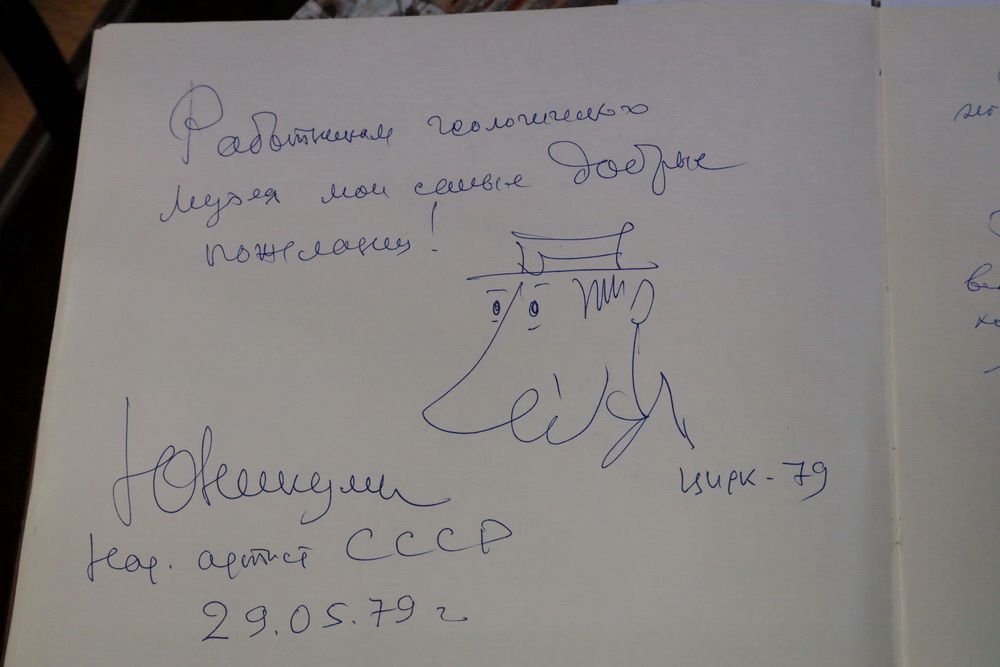 Работникам геологического
музея мои самые добрые
пожелания!
Ю Никулин
цирк - 79
Нар. артист СССР
29.05.79 г